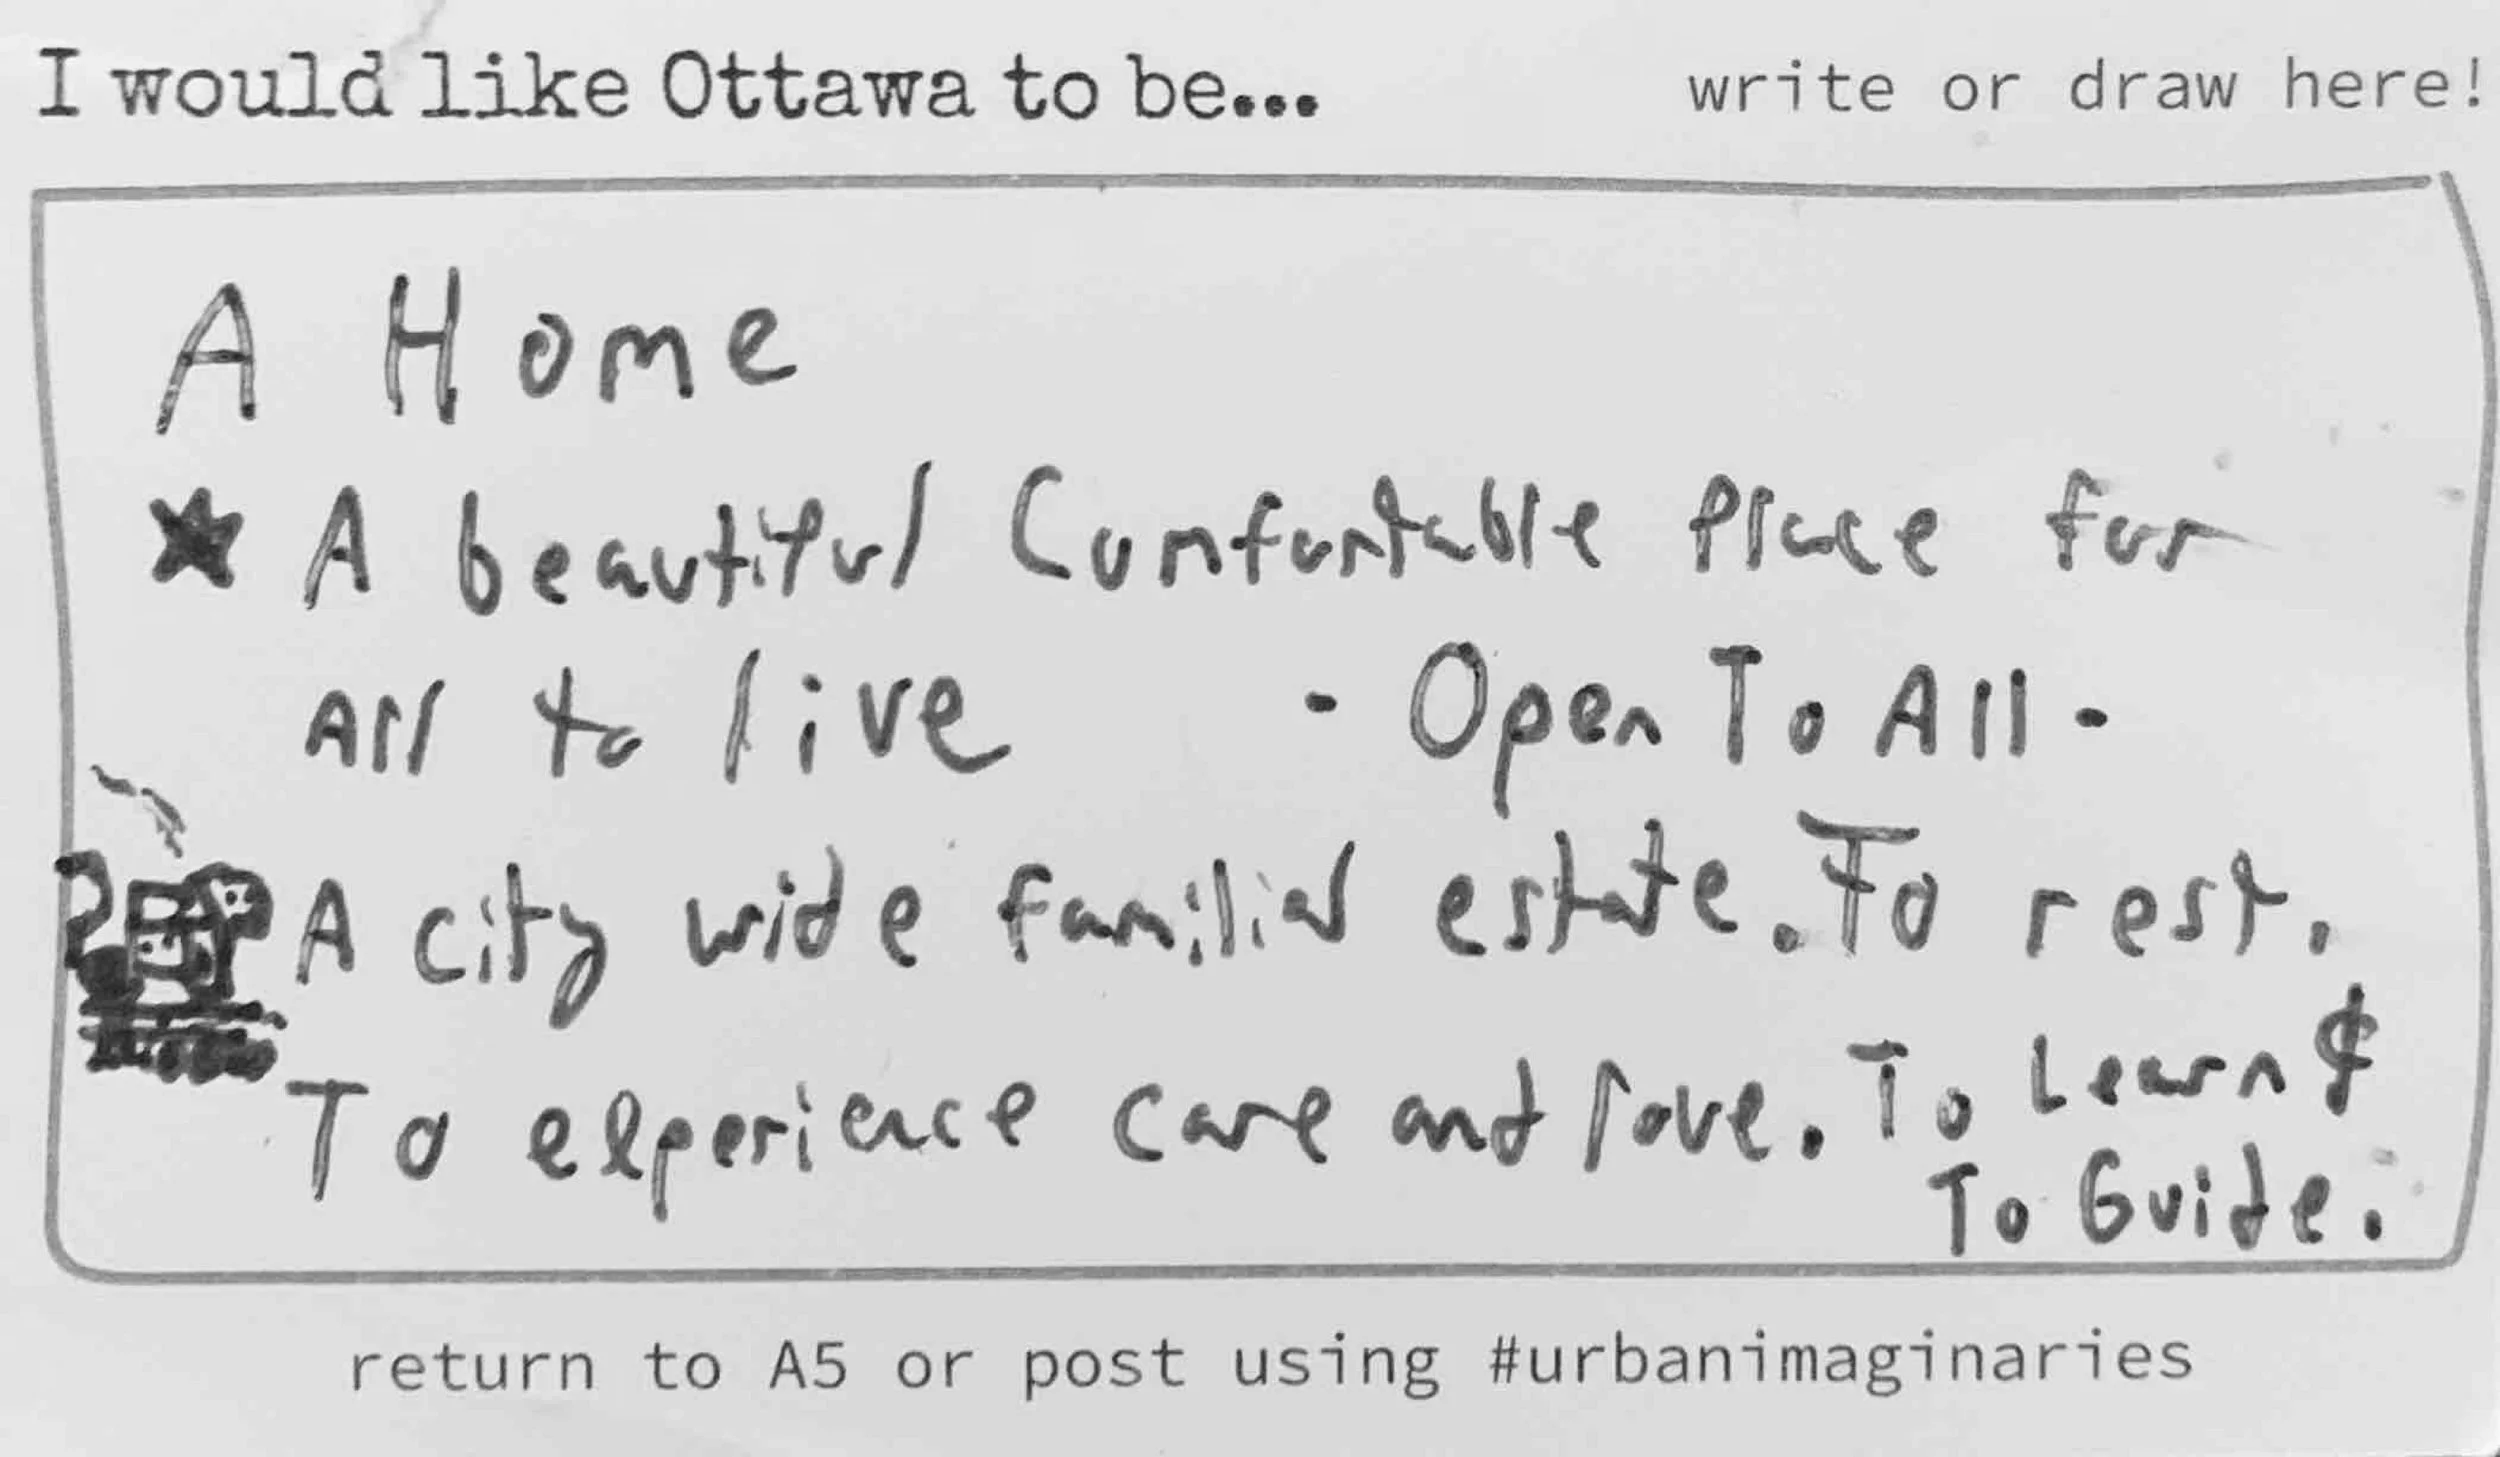 I would like Ottawa to be... write or draw here!
A Home
★ A beautiful Comfortable Place for
All to live - Open To All -
A city wide familial estate. To rest.
To experience care and love. To Learn &
To Guide.
return to A5 or post using #urbanimaginaries